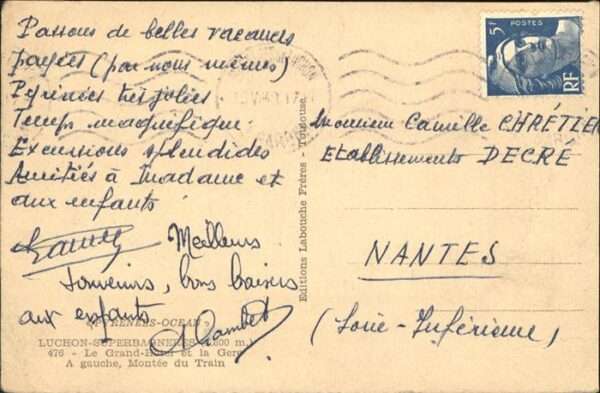 Passons de belles vacances
payées (par nous mêmes)
Pyrénées très jolies
Temps magnifique.
Excursions splendides
Amitiés à Madame et
aux enfants.
Meilleurs
souvenirs, bons baisers
aux enfants
"PYRÉNÉES-OCÉAN"
LUCHON-SUPERBAGNÈRES (1.800 m.)
476 - Le Grand-Hôtel et la Gare
A gauche, Montée du Train
Editions Labouche Frères - Toulouse
5F POSTES
RF
Monsieur Camille CHRÉTIEN
Etablissements DECRÉ
NANTES
(Loire-Inférieure)